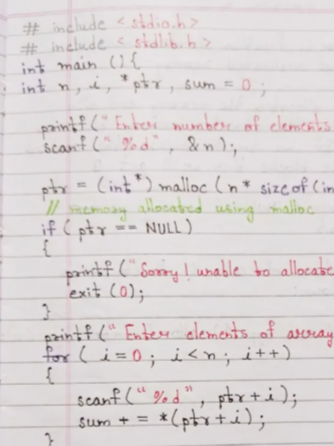 # include < stdio.h>
# include < stdlib.h>
int main () {
int n, i, *ptr, sum = 0 ;
printf (" Enter number of elements
scanf (" %d" , &n);
ptr = (int*) malloc (n* sizeof (in
// memory allocated using malloc
if ( ptr == NULL)
{
printf (" Sorry! unable to allocate
exit (0);
}
printf (" Enter elements of array
for ( i=0 ; i<n ; i++)
{
scanf (" %d" , ptr+i);
sum + = *(ptr+i);
}